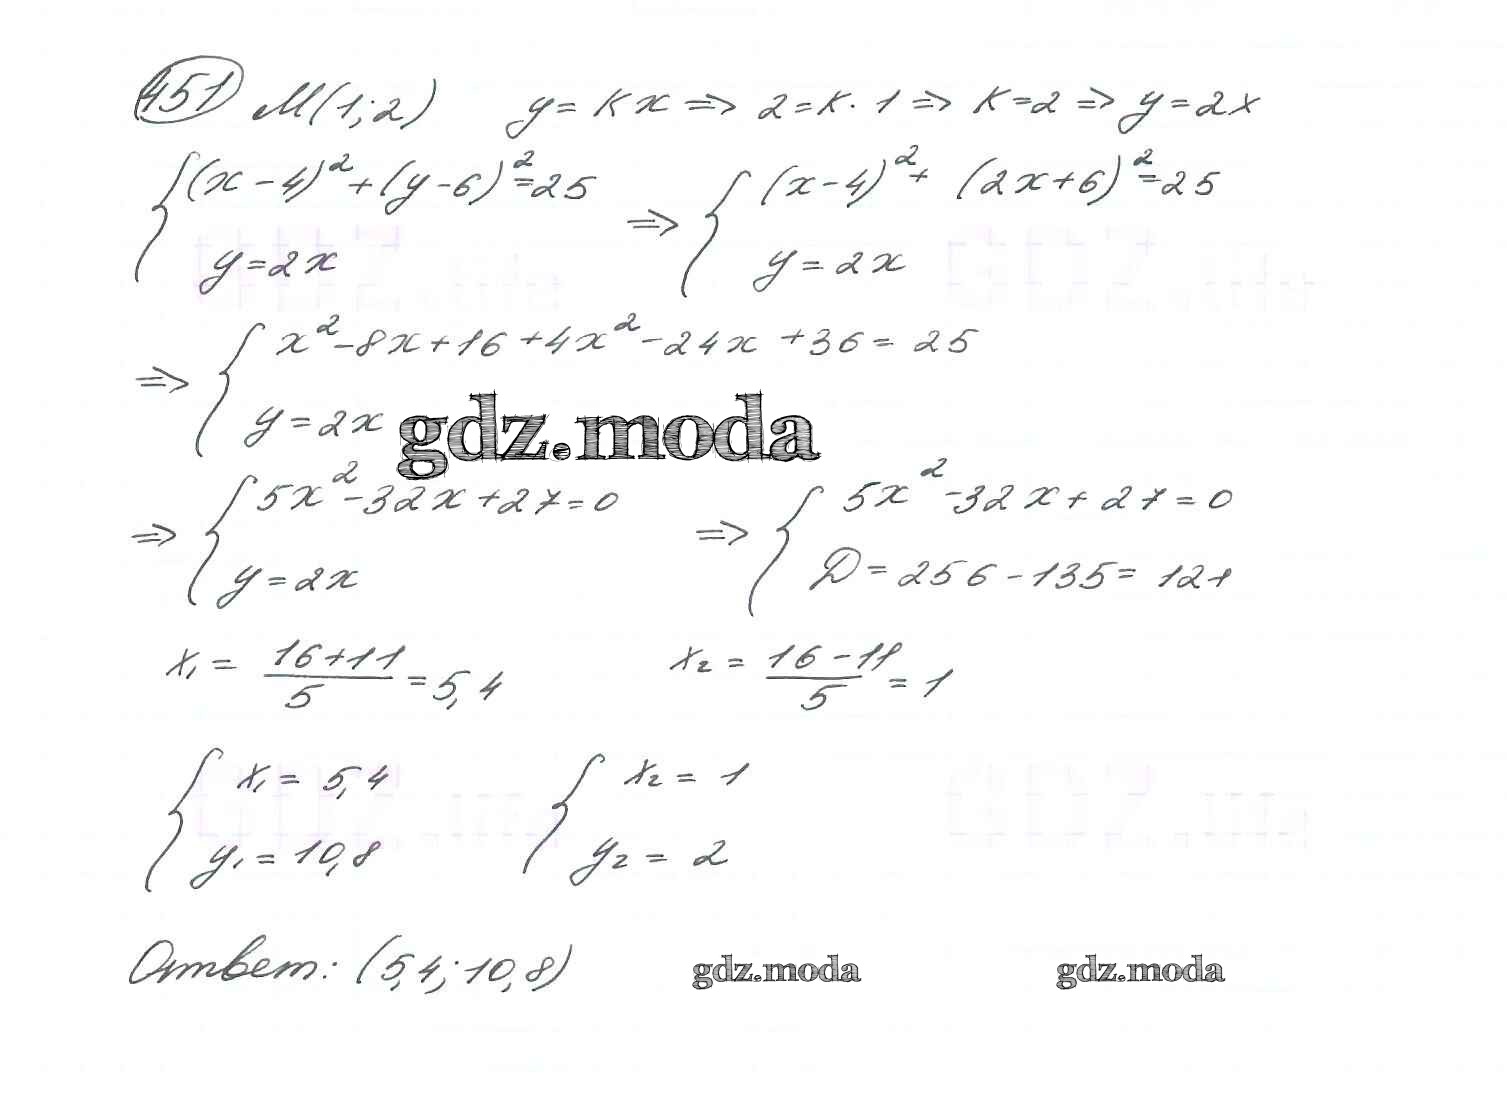 451 M(1;2) y = Kx => 2=K·1 => K=2 => y=2x
{ (x-4)²+(y-6)²=25 => { (x-4)²+ (2x+6)²=25
y=2x y=2x
=> { x²-8x+16+4x²-24x+36=25
y=2x
gdz.moda
=> { 5x²-32x+27=0 => { 5x²-32x+27=0
y=2x D=256-135=121
x₁ = (16+11)/5 = 5,4 x₂ = (16-11)/5 = 1
{ x₁ = 5,4 { x₂ = 1
y₁ = 10,8 y₂ = 2
Ответ: (5,4; 10,8)
gdz.moda gdz.moda